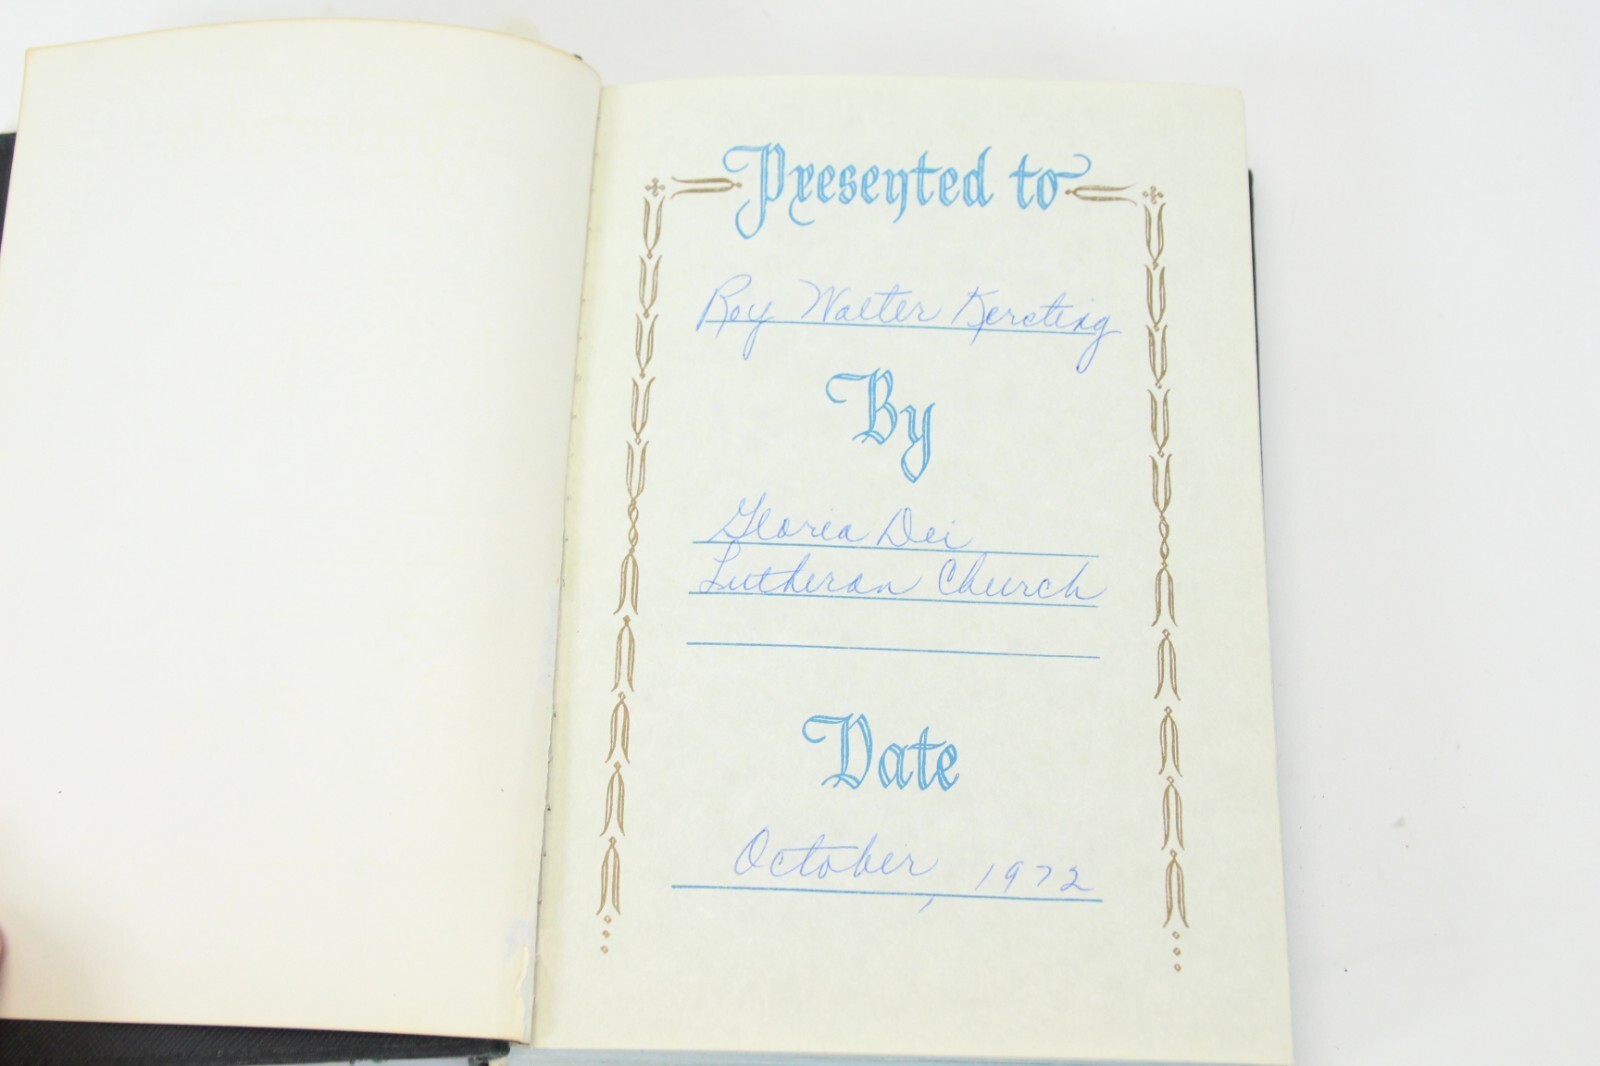 Presented to
Roy Walter Kersting
By
Gloria Dei
Lutheran Church
Date
October, 1972